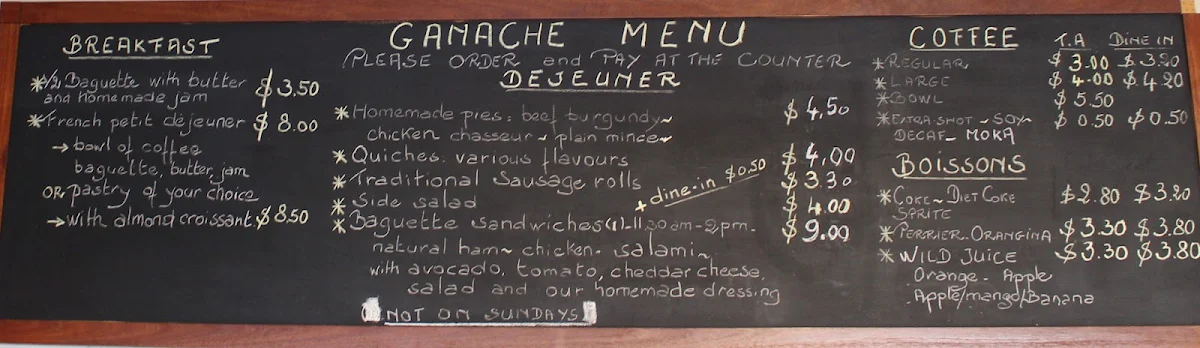 BREAKFAST
*1/2 Baguette with butter $3.50
and homemade jam
*French petit déjeuner $8.00
→ bowl of coffee
baguette, butter, jam
OR pastry of your choice
→ with almond croissant $8.50
GANACHE MENU
PLEASE ORDER and PAY AT THE COUNTER
DEJEUNER
*Homemade pies: beef burgundy~ $4.50
chicken chasseur ~ plain mince~
*Quiches. various flavours $4.00
*Traditional Sausage rolls $3.30
+ dine-in $0.50
*Side salad $4.00
*Baguette sandwiches(1)-11.30am-2pm- $9.00
natural ham~ chicken- salami~
with avocado, tomato, cheddar cheese,
salad and our homemade dressing
NOT ON SUNDAYS
COFFEE T.A DINE IN
*REGULAR $3.00 $3.20
*LARGE $4.00 $4.20
*BOWL $5.50
*EXTRA SHOT ~ SOY~ $0.50 $0.50
DECAF- MOKA
BOISSONS
*COKE~ DIET COKE $2.80 $3.20
SPRITE
*PERRIER-ORANGINA $3.30 $3.80
*WILD JUICE $3.30 $3.80
Orange - Apple
Apple/mango/Banana